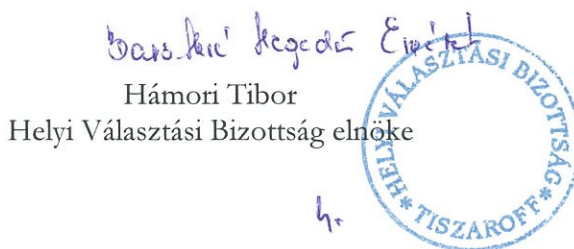 Hegedűs
Hámori Tibor
Helyi Választási Bizottság elnöke
HELYI VÁLASZTÁSI BIZOTTSÁG * TISZAROFF *
h.